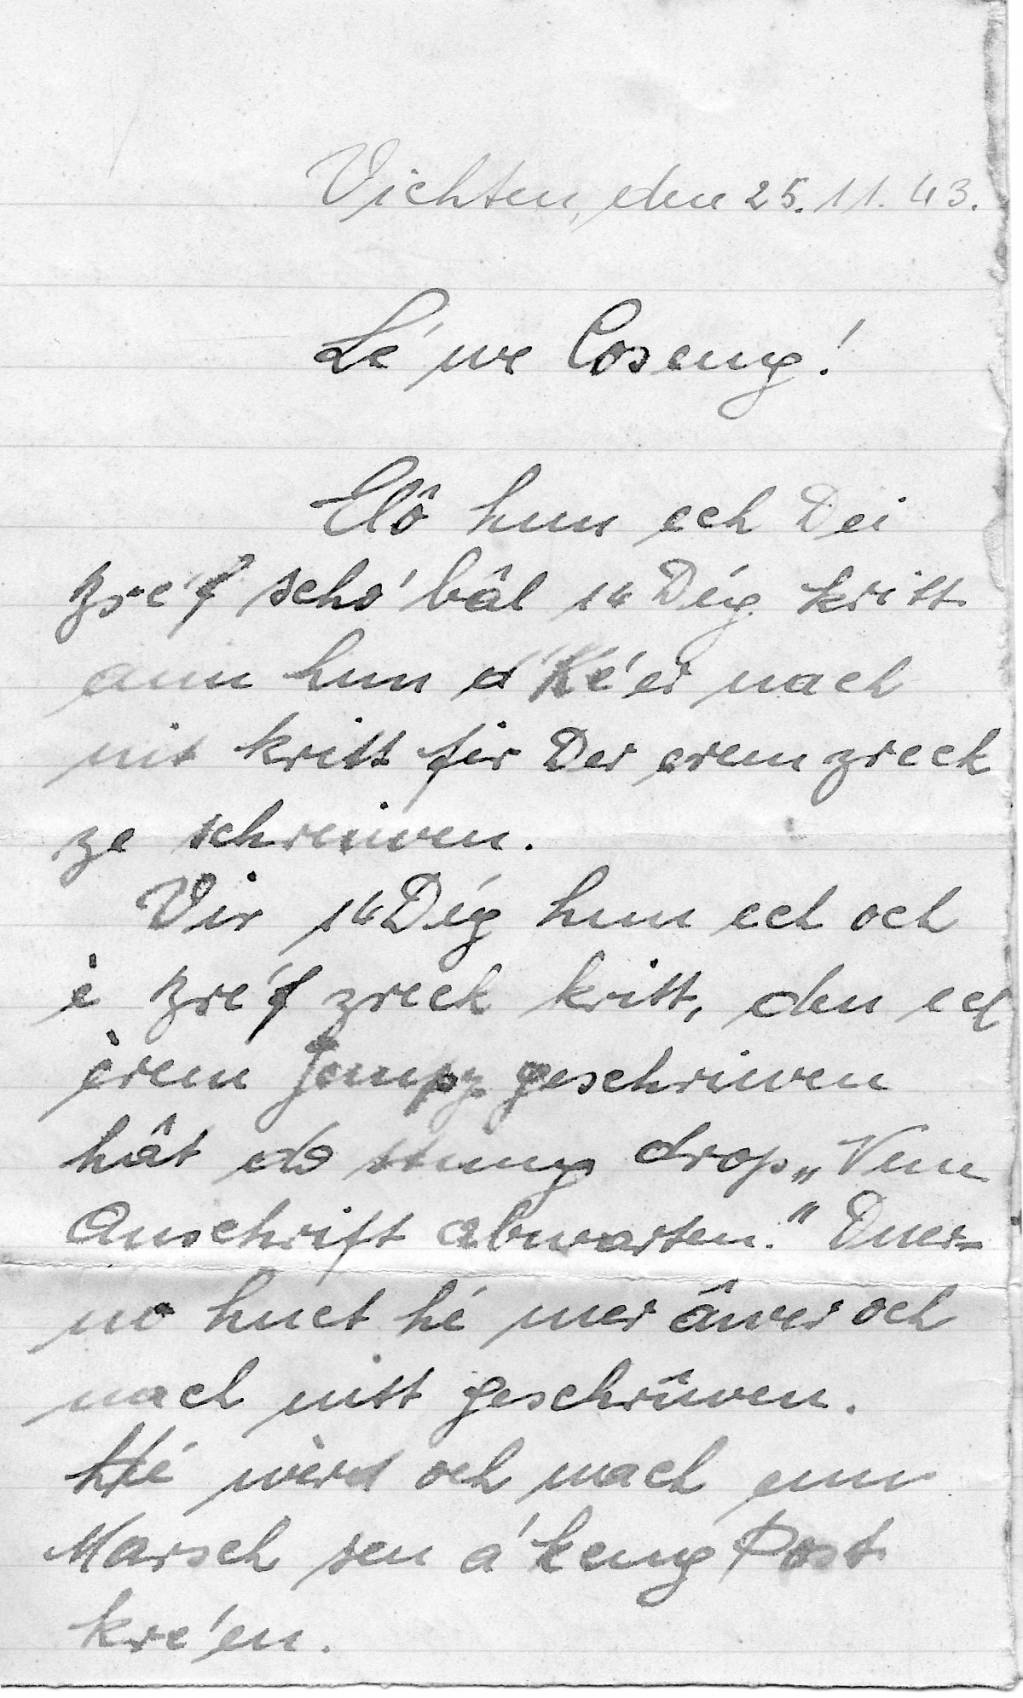 Vichten, den 25.11.43.
Lé'we Coseng!
Elô hun ech Dei
Bre'f scho' bâl 14 Dég kritt
ann hun d'Ké'er nach
nit kritt fir Der erem zreck
ze schreiwen.
Vir 14 Dég hun ech och
è Bre'f zreck kritt, den ech
èrem Jempy geschriwen
hât do stung drop „Neue
Anschrift abwarten." Duer-
no huet hé mer âwer och
nach nitt geschriwen.
Hié wèrd och nach um
Marsch sen a' keng Post
kre'en.